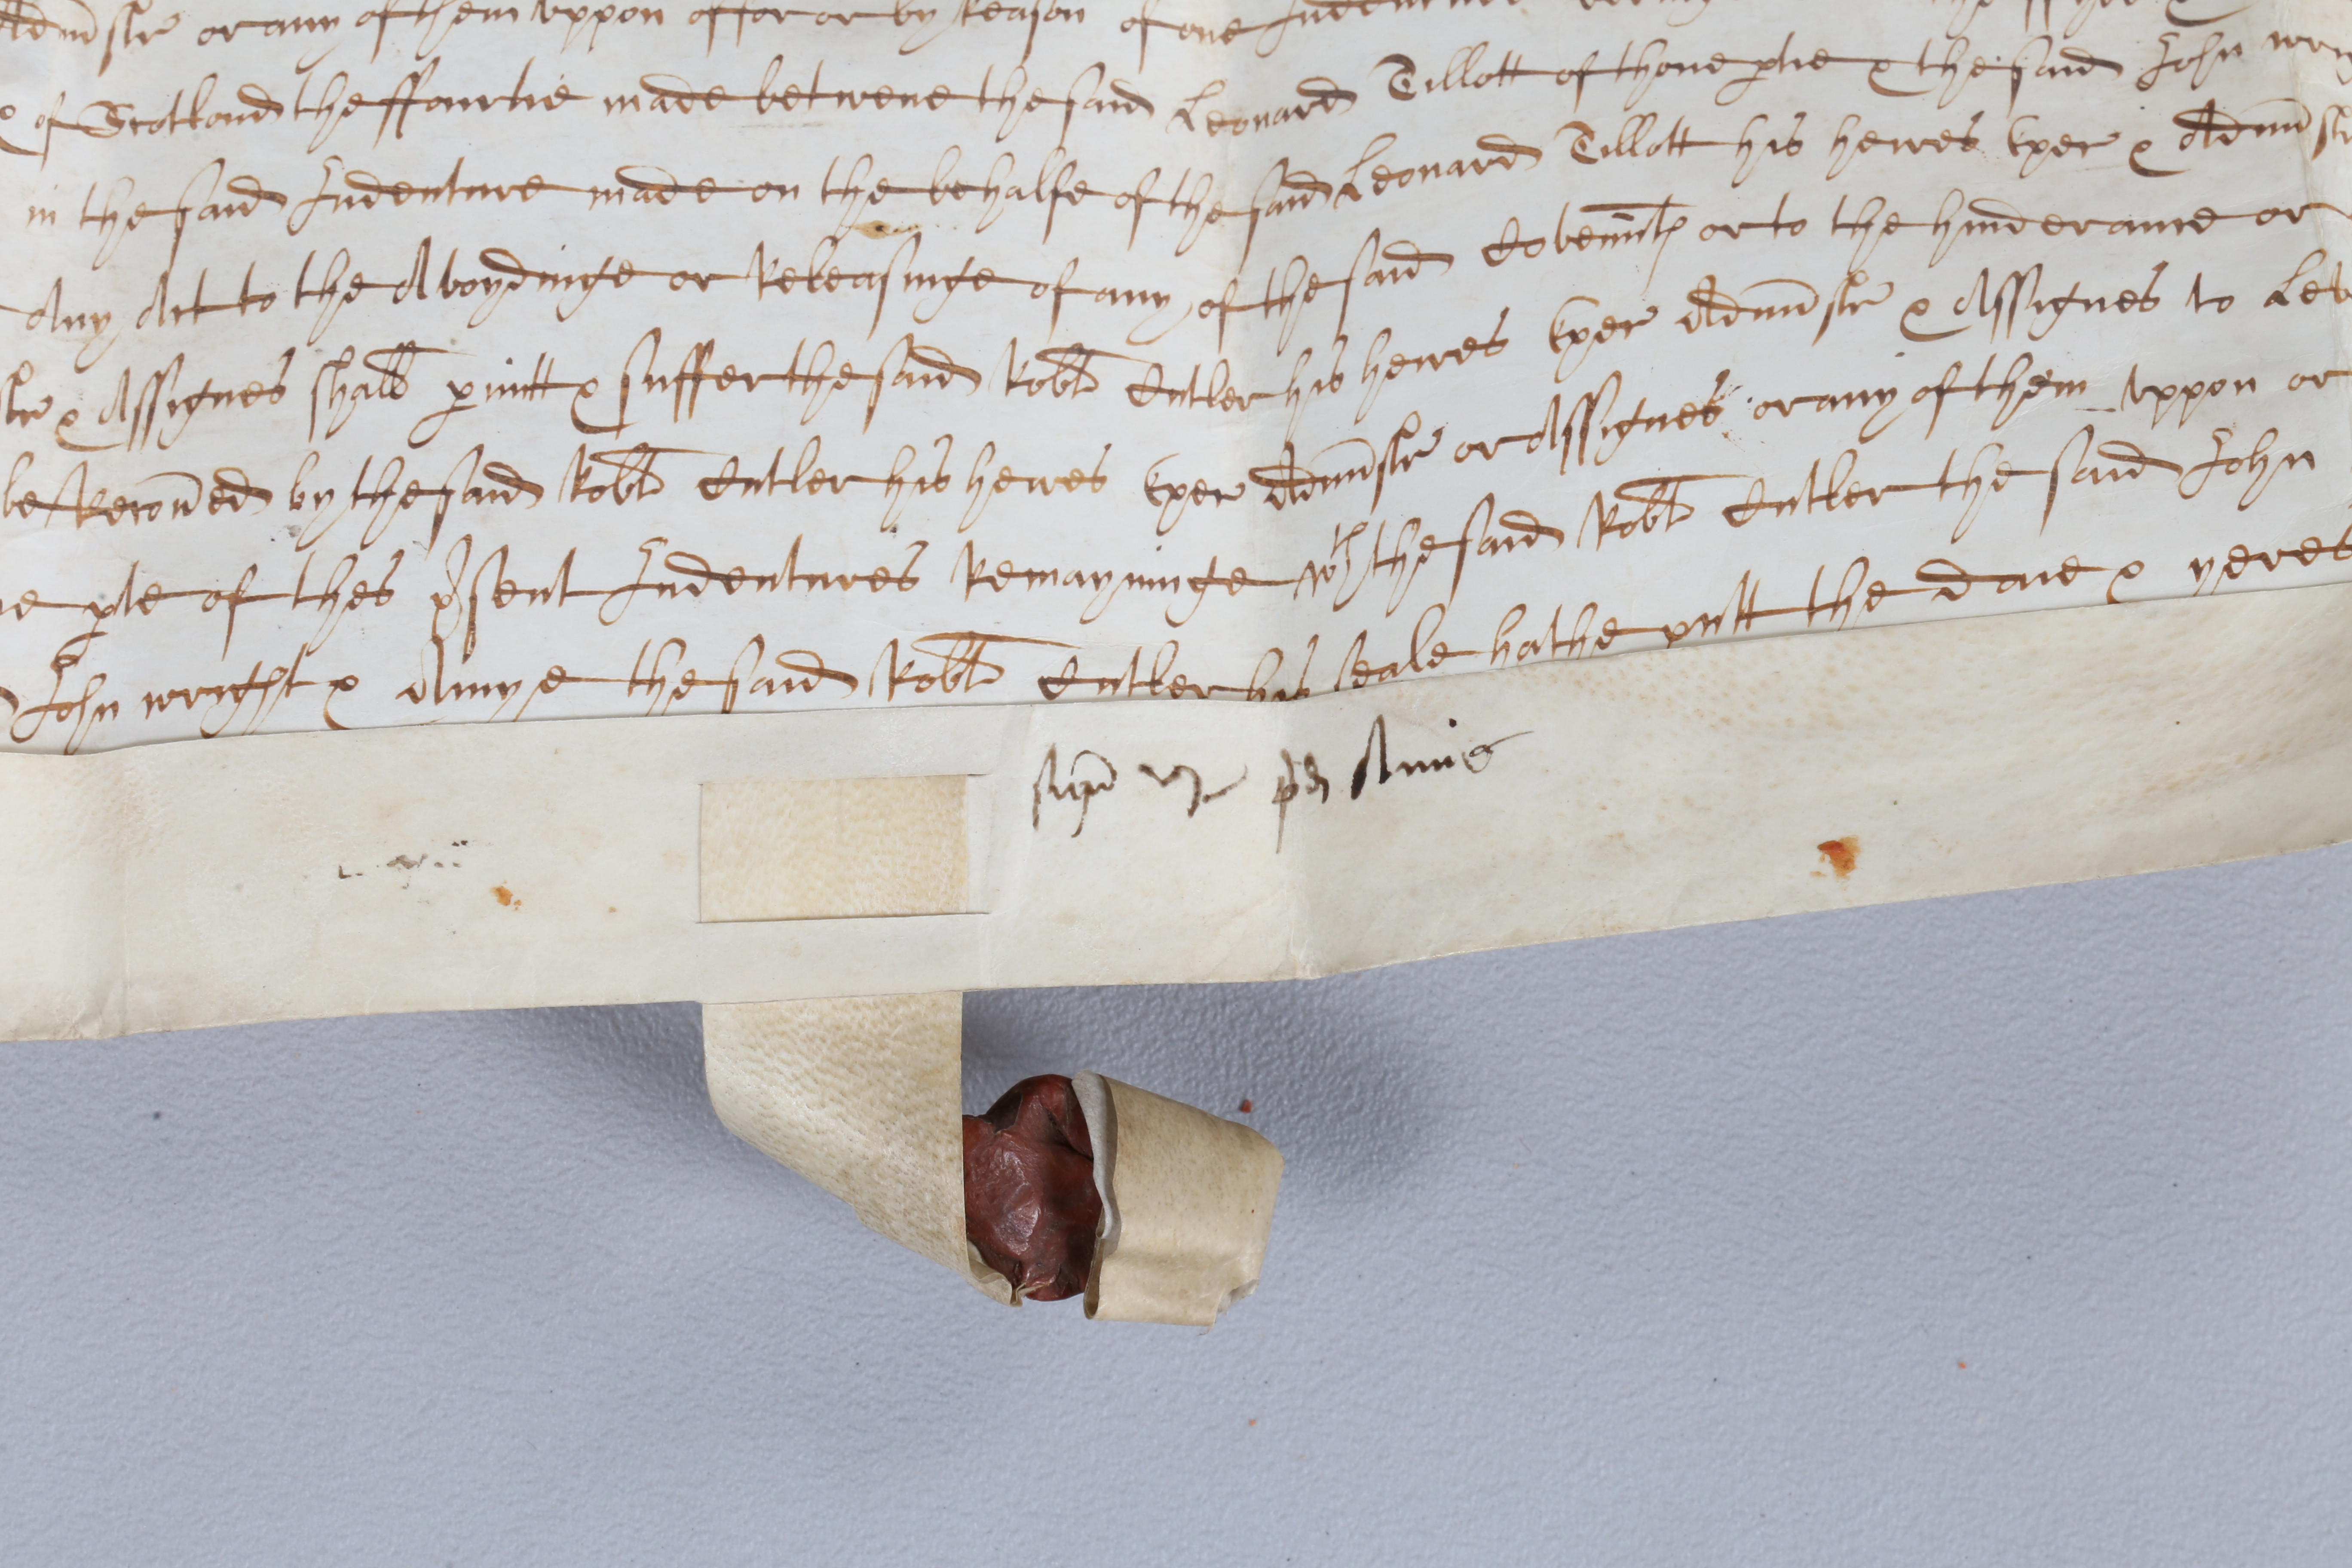 or any of them vppon of for or by Reason of one Indenture
& of Scotland the ffourtie made betwene the said Leonard Tillott of thone ptie & the said John
in the said Indenture made on the behalfe of the said Leonard Tillott his heires Exer & Adm̃str
Any Act to the Avoydinge or Releasinge of any of the said or to the hinderance or
& Assignes shall pmitt & suffer the said Robt Cutler his heires Exer Adm̃str & Assignes to
be Recoũed by the said Robt Cutler his heires Exer Adm̃str or Assignes or any of them vppon or
pte of thes p̃sent Indentures Remayninge wth the said Robt Cutler the said John
John wright & Amye the said Robt Cutler his seale hathe putt the daie & yeres